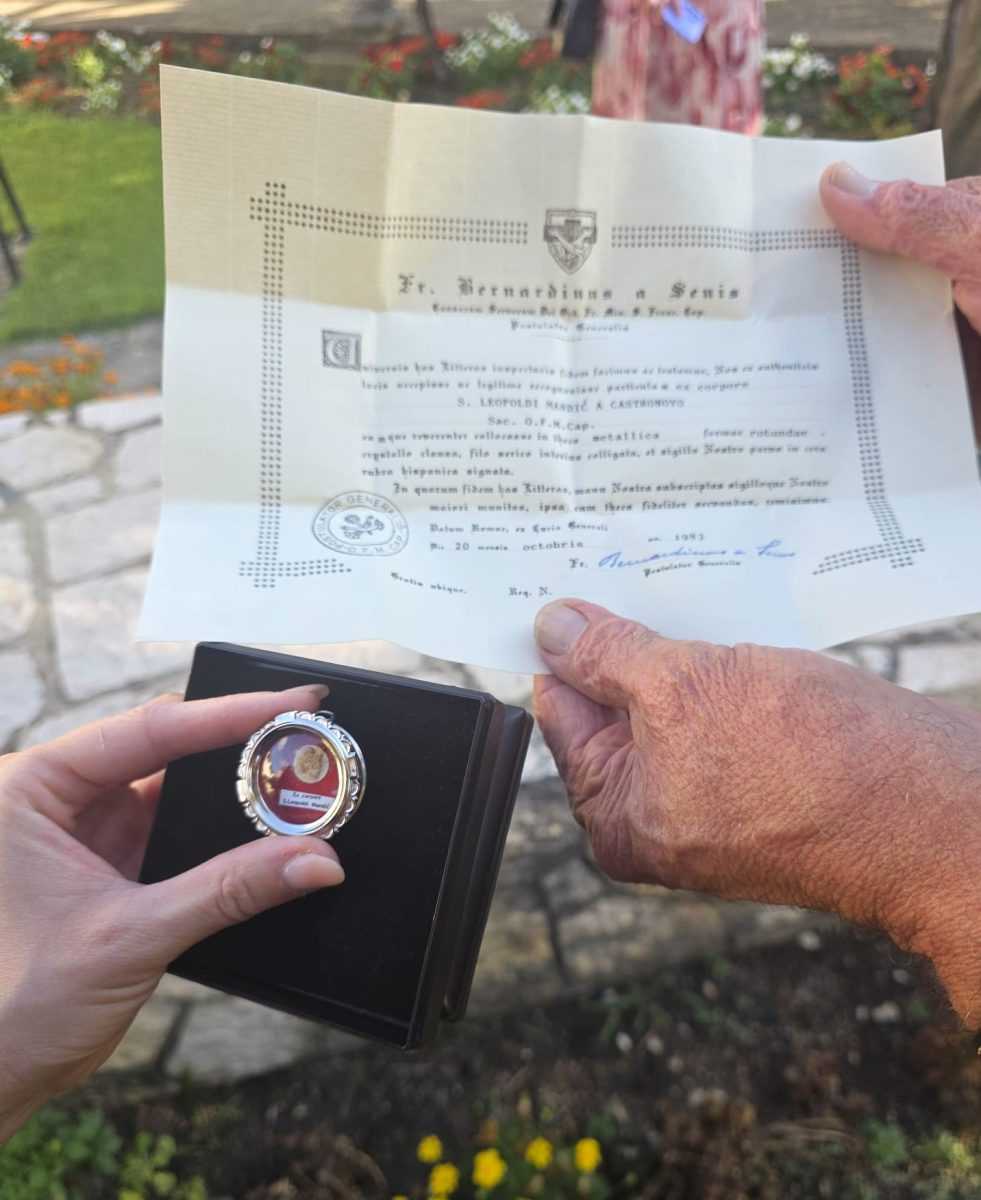 Fr. Bernardinus a Senis
Causarum Servorum Dei Ord. Fr. Min. S. Franc. Cap.
Postulator Generalis
Universis has litteras inspecturis fidem facimus ac testamur, Nos ex authenticis
locis accepisse ac legitime recognovisse particulam ex corpore
S. LEOPOLDI MANDIĆ A CASTRONOVO
Sac. O.F.M.Cap.
eamque reverenter collocasse in theca metallica formae rotundae
crystallo clausa, filo serico interius colligata, et sigillo Nostro parvo in cera
rubra hispanica signata.
In quorum fidem has litteras, manu Nostra subscriptas sigilloque Nostro
maiori munitas, ipsa cum theca fideliter servandas, consignamus
Datum Romae, ex Curia Generali
Die 20 mensis octobris an. 1983
Fr. Bernardinus a Senis
Postulator Generalis
Gratis ubique. Reg. N.
POSTULATOR GENERALIS O.F.M. CAP.
Ex corpore
S. Leopoldi Mandić